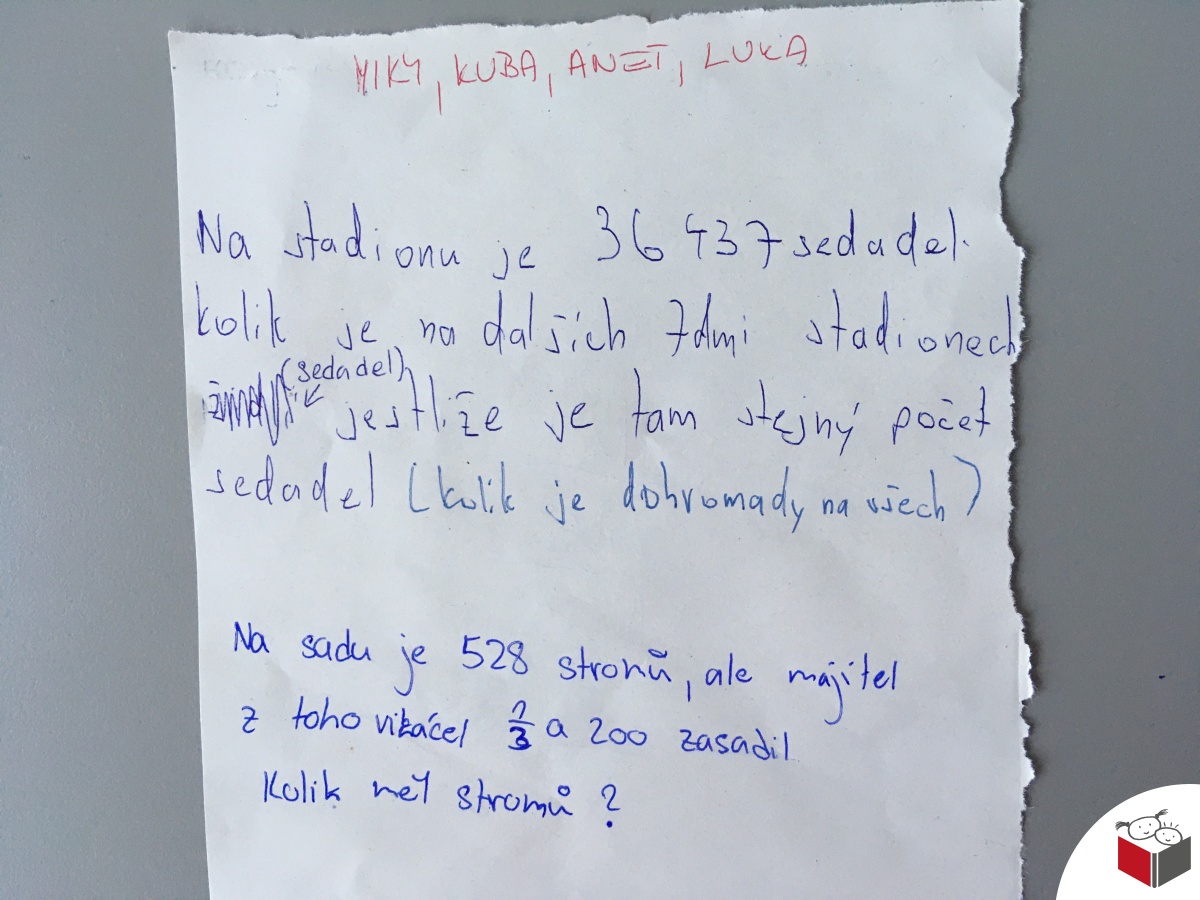 MIKY, KUBA, ANET, LUKA
Na stadionu je 36 437 sedadel.
kolik je na dalších 7dmi stadionech
(sedadel)
jestliže je tam stejný počet
sedadel (kolik je dohromady na všech)
Na sadu je 528 stromů, ale majitel
z toho vikácel 1/3 a 200 zasadil
Kolik měl stromů ?